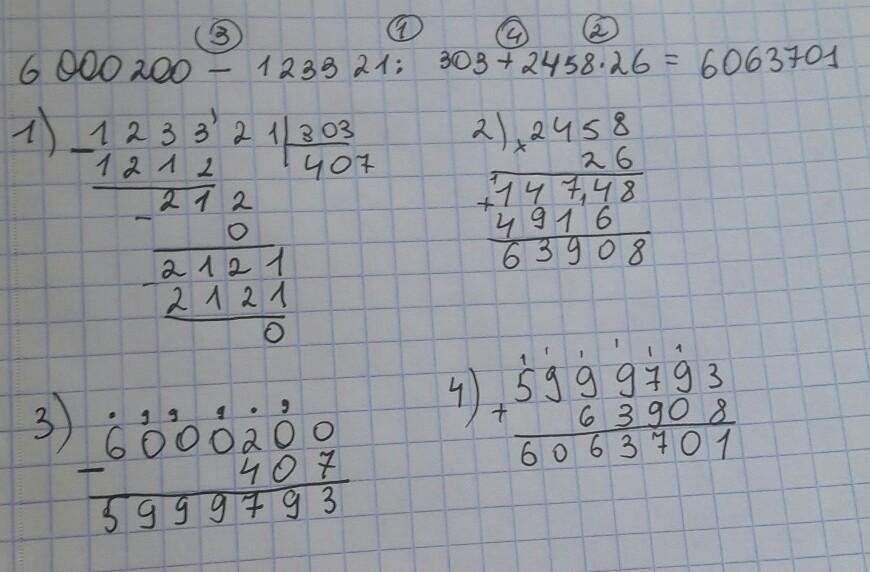 ③ ① ④ ②
6 000 200 − 123321 : 303 + 2458 · 26 = 6063701
1) − 123321 | 303
1212 407
− 212
0
− 2121
2121
0
2) × 2458
26
+ 14748
4916
63908
3) − 6000200
407
5999793
4) + 5999793
63908
6063701